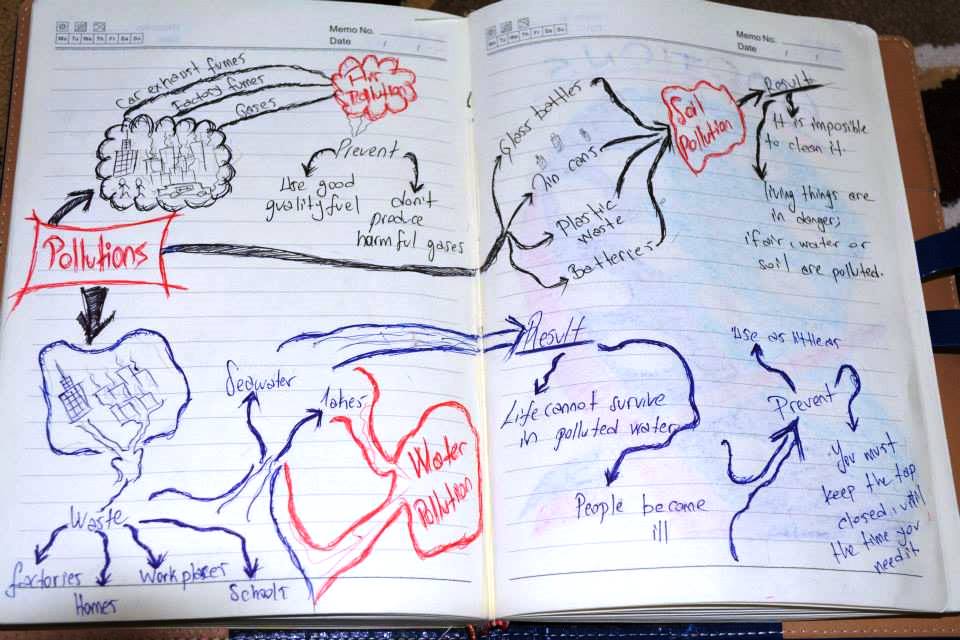 Memo No.
Mo Tu We Th Fr Sa Su
Date / /
Car exhaust fumes
Factory fumes
Gases
Air
Pollution
Prevent
Use good
quality fuel
don't
produce
harmful gases
Pollutions
Seawater
lakes
Water
Pollution
Waste
factories
Homes
Workplaces
Schools
Memo No.
Mo Tu We Th Fr Sa Su
Date / /
Glass bottles
Tin cans
Plastic
waste
Batteries
Soil
Pollution
Result
It is imposible
to clean it.
living things are
in danger,
if air, water or
soil are polluted.
Result
Life cannot survive
in polluted water
People become
ill
Use as little as
Prevent
You must
keep the tap
closed, until
the time you
need it